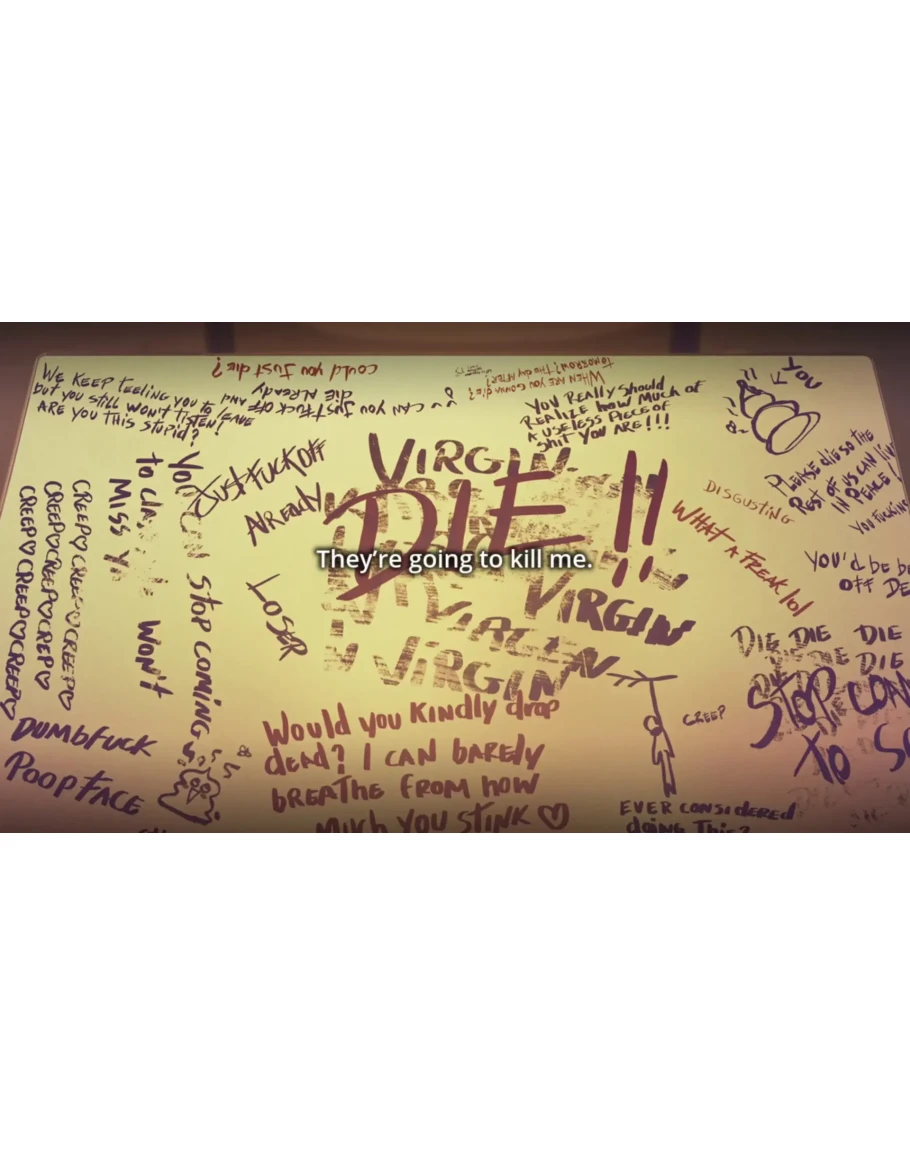 could you just die?
WE KEEP TEELING YOU TO LEAVE
but you still won't listen!
ARE YOU THIS STUPID?
CAN YOU JUST FUCK OFF AND
die ALREADY
WHEN ARE YOU GONNA diE?
TOMORROW? THE dAy AFTER?
YOU REAlly Should
REAlizE how MUCH of
A USELESS PIECE OF
Shit YOU ARE!!!
YOU
PlEASE diE SO THE
REST OF US CAN
IN PEACE
YOU FUCKING
JUST FUCK OFF
AlREADY
VIRGIN
DIE!!
They're going to kill me.
DISGUSTING
WHAT A FREAK lol
YOU'd bE
OFF
VIRGIN
VIRGIN
VIRGIN
LOSER
STOP COMING
to
WON'T
MISS
CREEP♡CREEP♡CREEP♡
CREEP♡CREEP♡CREEP♡
CREEP♡CREEP♡CREEP♡
DIE DIE DIE
DIE DIE
STOP
TO
CREEP
DUMBFUCK
POOPFACE
Would you KINdly drop
dEAd? I CAN bARELY
bREATHE FROM HOW
MUCh YOU STINK♡
EVER CONSidEREd
doiNG THIS?